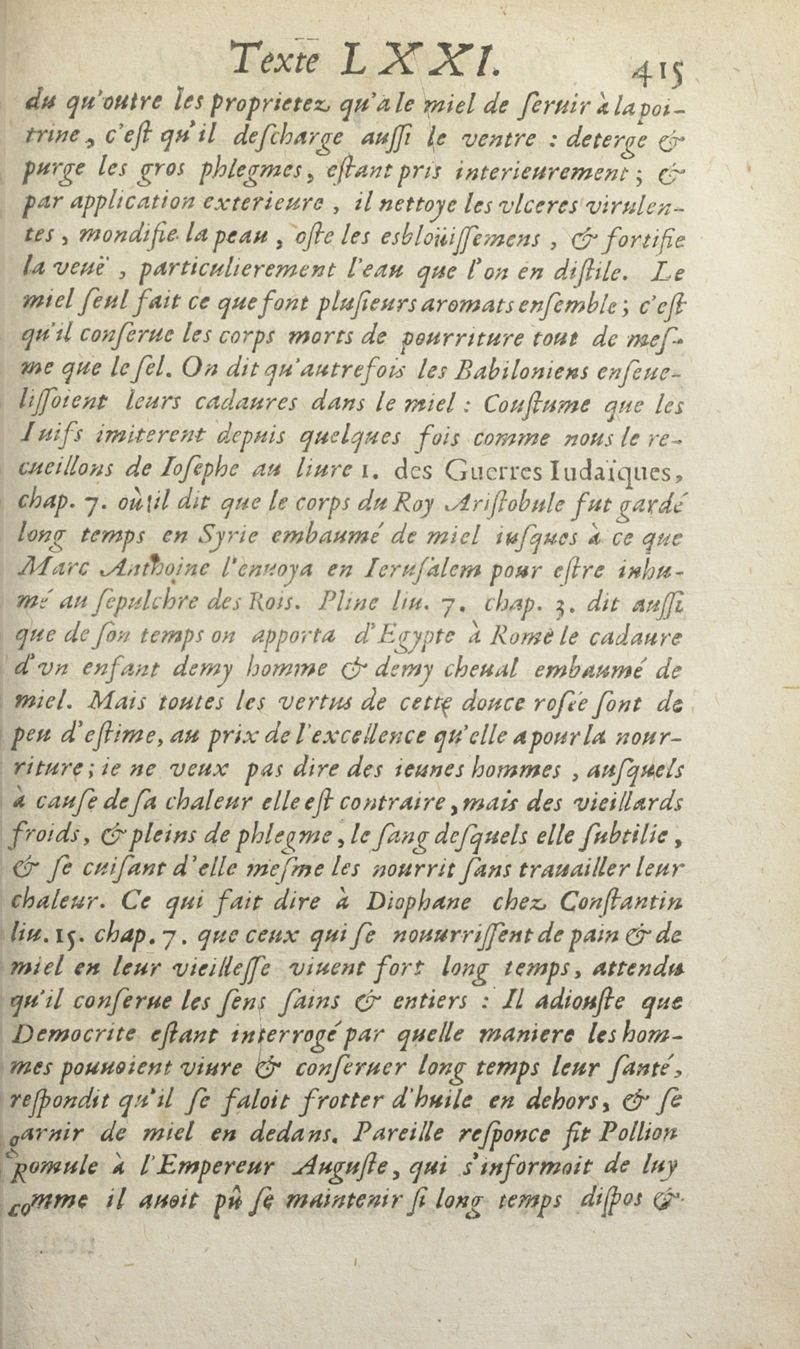 Texte LXXI. 415
du qu'outre les proprietez qu'a le miel de ſeruir à la poi-
trine, c'eſt qu'il deſcharge auſſi le ventre : deterge &
purge les gros phlegmes, eſtant pris interieurement ; &
par application exterieure , il nettoye les vlceres virulen-
tes , mondifie la peau , oſte les esbloüiſſemens , & fortifie
la veuë , particulierement l'eau que l'on en diſtile. Le
miel ſeul fait ce que font pluſieurs aromats enſemble ; c'eſt
qu'il conſerue les corps morts de pourriture tout de meſ-
me que le ſel. On dit qu'autrefois les Babiloniens enſeue-
liſſoient leurs cadaures dans le miel : Couſtume que les
Iuifs imiterent depuis quelques fois comme nous le re-
cueillons de Ioſephe au liure 1. des Guerres Iudaïques,
chap. 7. où il dit que le corps du Roy Ariſtobule fut gardé
long temps en Syrie embaumé de miel iuſques à ce que
Marc Anthoine l'enuoya en Ieruſalem pour eſtre inhu-
mé au ſepulchre des Rois. Pline liu. 7. chap. 3. dit auſſi
que de ſon temps on apporta d'Egypte à Rome le cadaure
d'vn enfant demy homme & demy cheual embaumé de
miel. Mais toutes les vertus de cette douce roſée ſont de
peu d'eſtime, au prix de l'excellence qu'elle a pour la nour-
riture ; ie ne veux pas dire des ieunes hommes , auſquels
à cauſe de ſa chaleur elle eſt contraire , mais des vieillards
froids, & pleins de phlegme , le ſang deſquels elle ſubtilie ,
& ſe cuiſant d'elle meſme les nourrit ſans trauailler leur
chaleur. Ce qui fait dire à Diophane chez Conſtantin
liu. 15. chap. 7. que ceux qui ſe nouurriſſent de pain & de
miel en leur vieilleſſe viuent fort long temps, attendu
qu'il conſerue les ſens ſains & entiers : Il adiouſte que
Democrite eſtant interrogé par quelle maniere les hom-
mes pouuoient viure & conſeruer long temps leur ſanté,
reſpondit qu'il ſe faloit frotter d'huile en dehors, & ſe
garnir de miel en dedans. Pareille reſponce fit Pollion
Romule à l'Empereur Auguſte, qui s'informoit de luy
comme il auoit pû ſe maintenir ſi long temps diſpos &